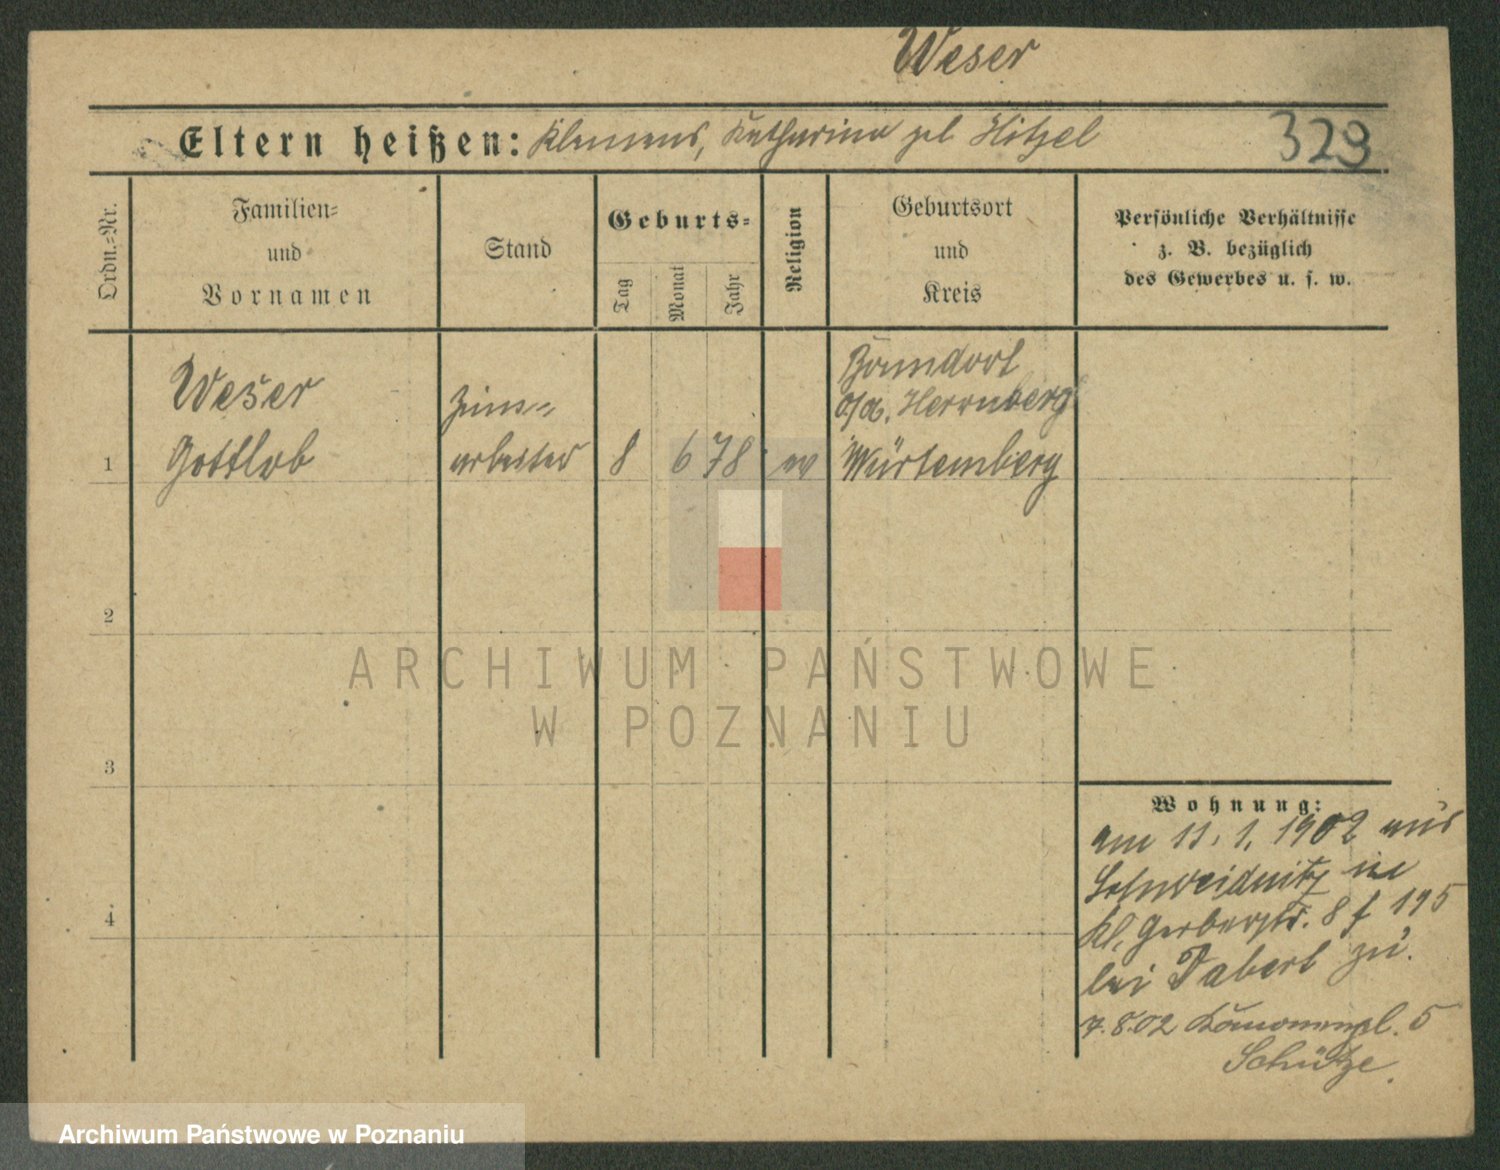 Weser
Eltern heißen: Klemens, Katharina geb Hitzel
329
Ordn.=Nr.
Familien=
und
Vornamen
Stand
Geburts=
Tag
Monat
Jahr
Religion
Geburtsort
und
Kreis
Persönliche Verhältnisse
z. B. bezüglich
des Gewerbes u. s. w.
1
Weser
Gottlob
arbeiter
8
6
78
ev
o/a. Herrnberg
Würtemberg
2
3
4
Wohnung:
am 11. 1. 1902 aus
Schweidnitz in
Kl. Gerberstr. 8 f 195
bei Tabert zu.
7.8.02 5
Schütze
ARCHIWUM PAŃSTWOWE
W POZNANIU
Archiwum Państwowe w Poznaniu